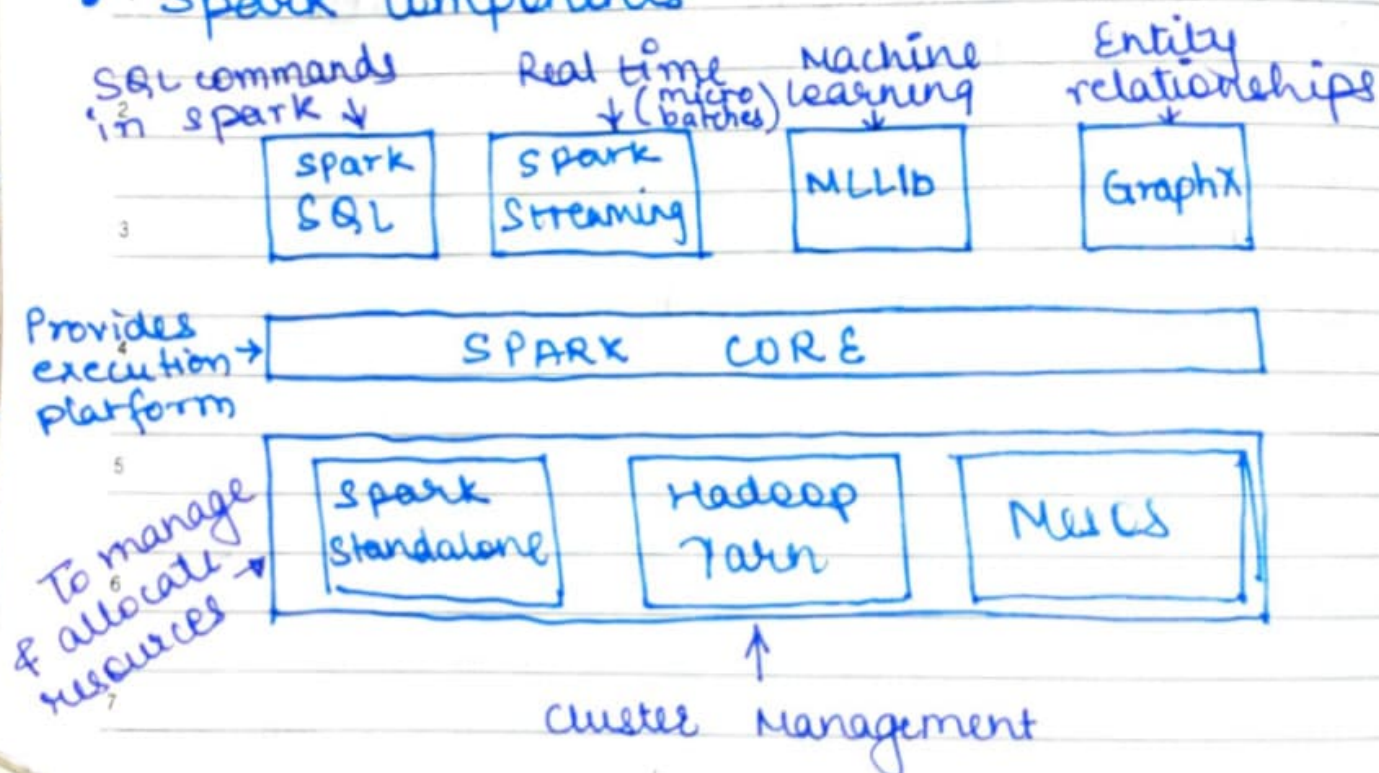 • Spark components
SQL commands
in spark
Real time
(micro
batches)
Machine
learning
Entity
relationships
Spark
SQL
Spark
Streaming
MLLIb
GraphX
3
Provides
execution
platform
4
SPARK CORE
5
To manage
& allocate
resources
6
Spark
Standalone
Hadoop
Yarn
7
Cluster Management